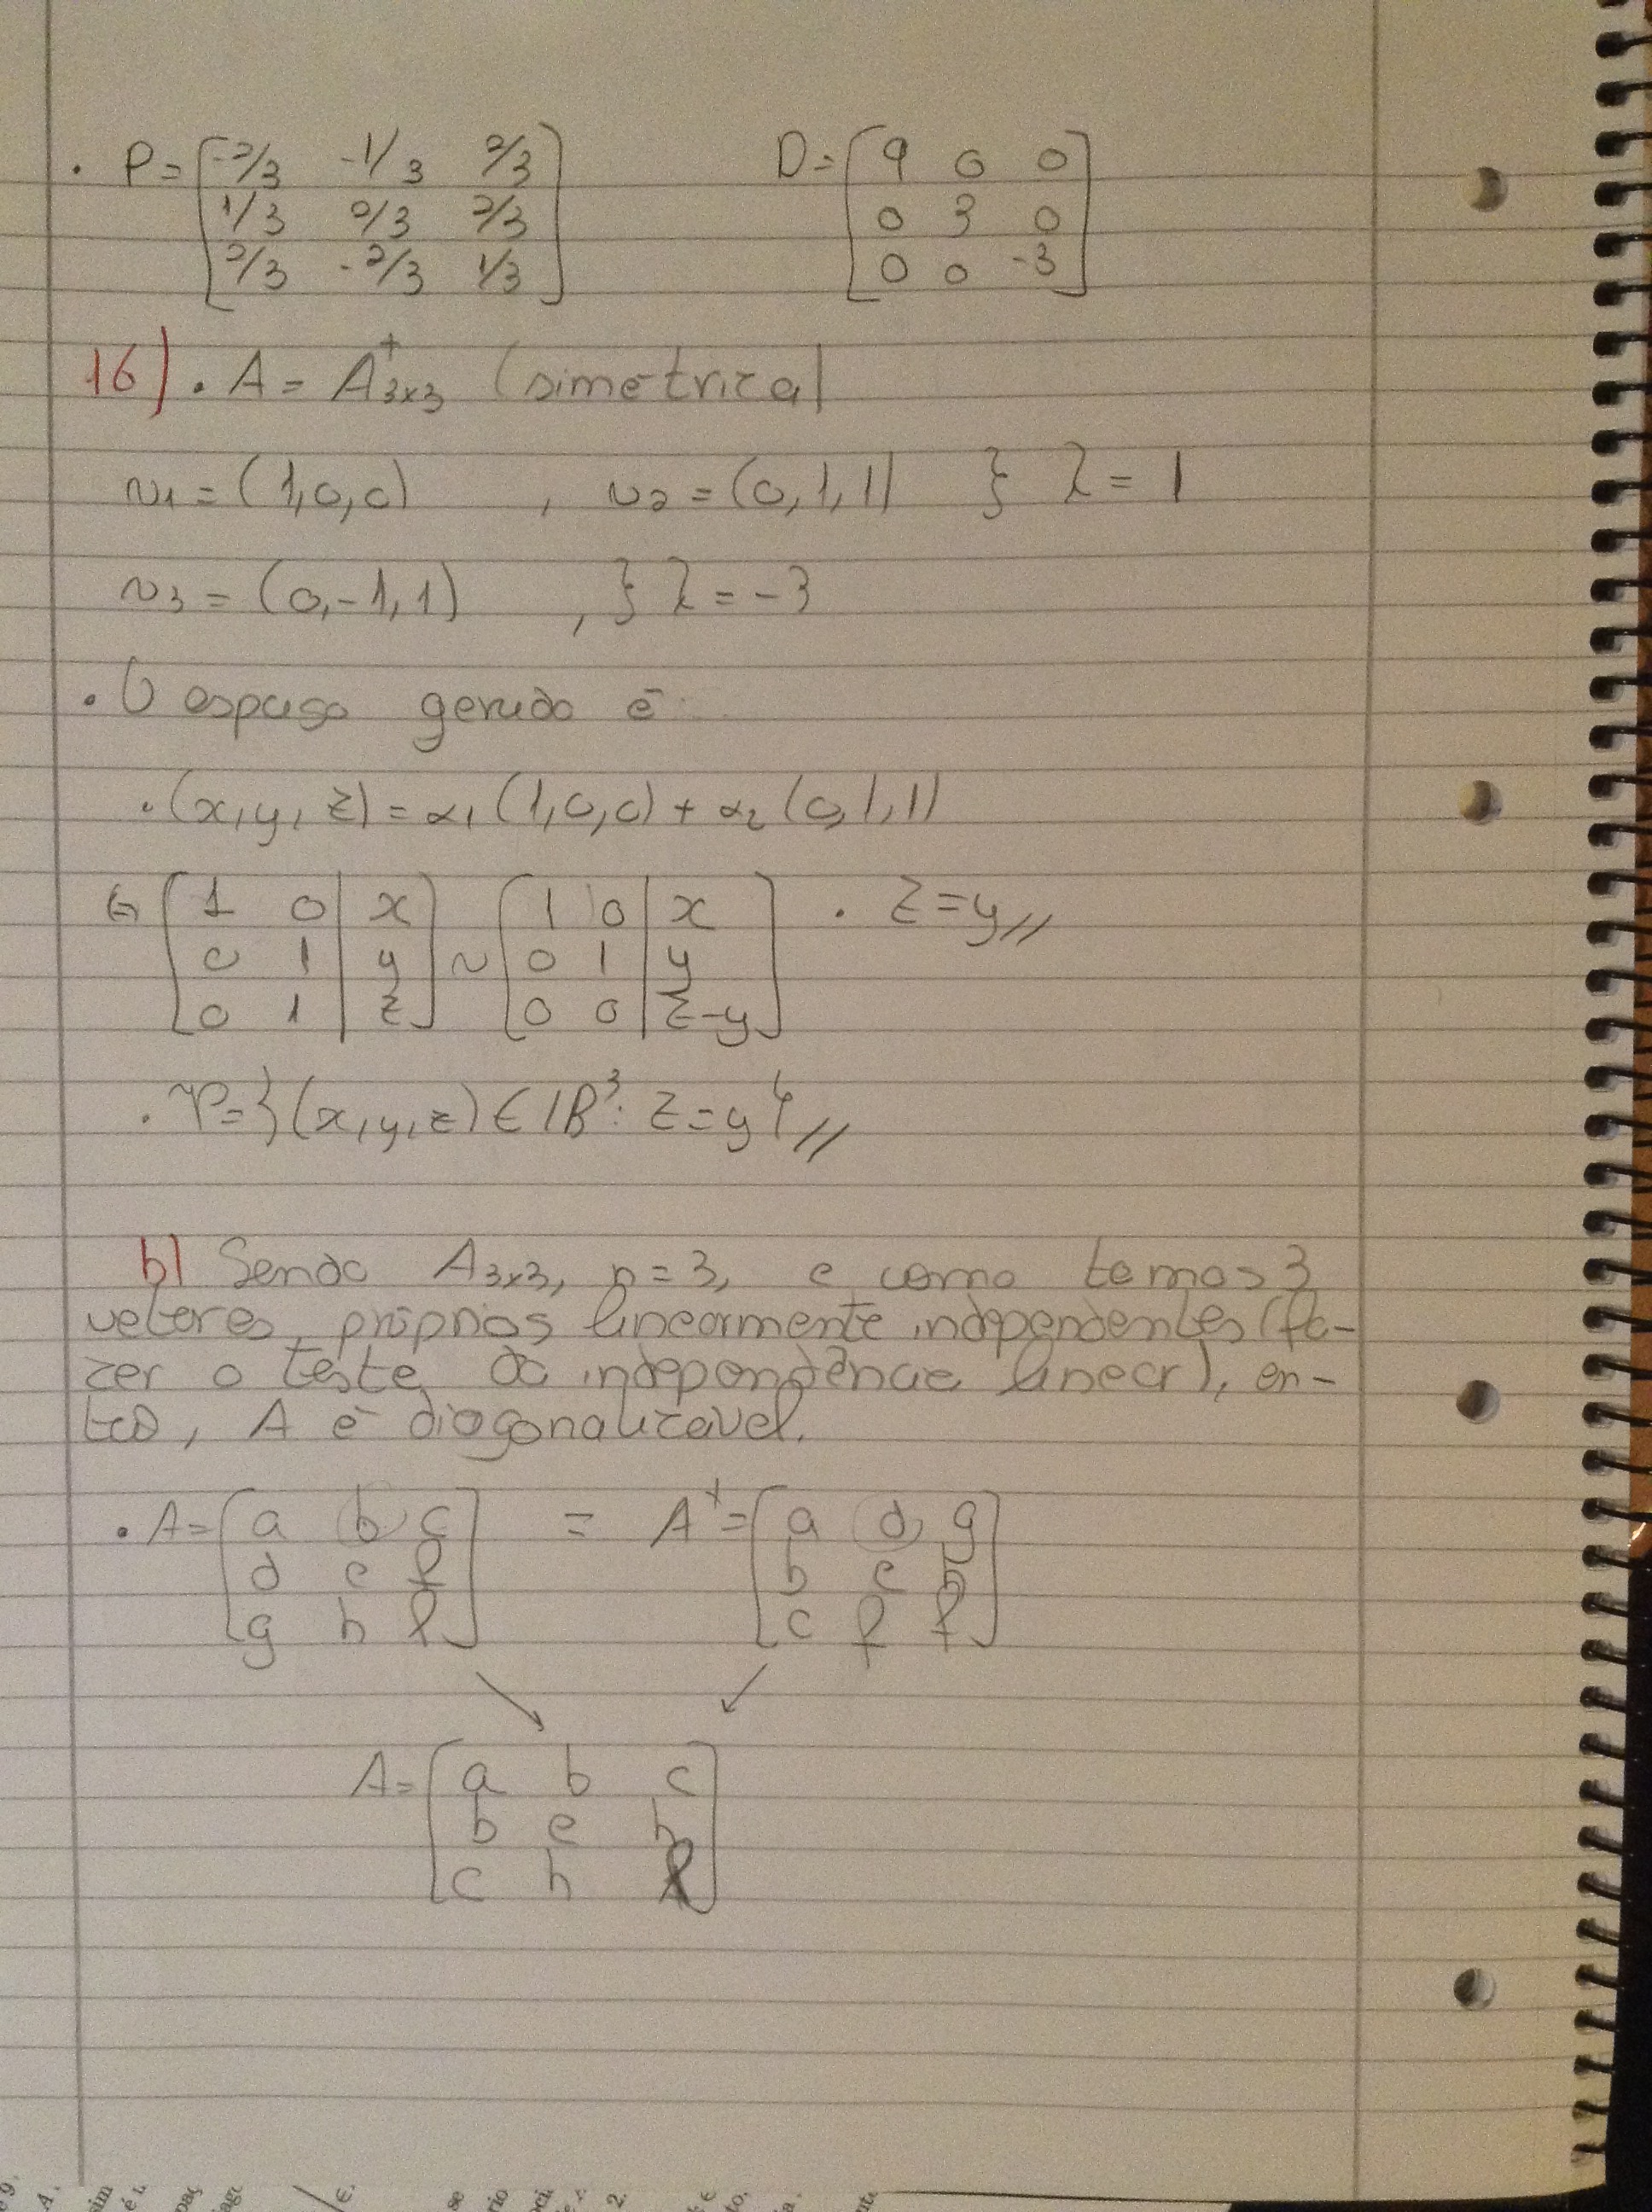 . P = [ -2/3 -1/3 2/3 D = [ 9 0 0
1/3 2/3 2/3 0 3 0
2/3 -2/3 1/3 ] 0 0 -3 ]
16) . A = A^t 3x3 (simétrica)
v1 = (1,0,0) , v2 = (0,1,1) } λ = 1
v3 = (0,-1,1) , } λ = -3
. O espaço gerado é
. (x,y,z) = α1 (1,0,0) + α2 (0,1,1)
⇔ [ 1 0 | x ~ [ 1 0 | x . z = y //
0 1 | y 0 1 | y
0 1 | z ] 0 0 | z-y ]
. V = {(x,y,z) ∈ IR³: z = y} //
b) Sendo A3x3, n = 3, e como temos 3
vetores próprios linearmente independentes (fa-
zer o teste da independência linear), en-
tão, A é diagonalizável.
. A = [ a b c = A^t = [ a d g
d e f b e h
g h l ] c f l ]
A = [ a b c
b e h
c h l ]